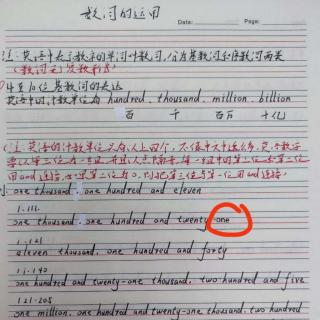 数词的运用
Date: Page:
注:英语中表示数字的单词叫数词,分为基数词和序数词两类
(数词无复数形式)
4至10位基数词的表达
英语中的计数单位有 hundred. thousand. million. billion
百 千 百万 十亿
(注:英语的计数单位只有以上四个,不像中文中这么多,英语数字
要以三位为一
and连接,
one thousand, one hundred and eleven
1.111.
one thousand, one hundred and twenty-one
1.121
eleven thousand. one hundred and forty
11.140
one hundred and twenty-one thousand, two hundred and five
121.205
one million. one hundred and twenty-one thousand, two hundred